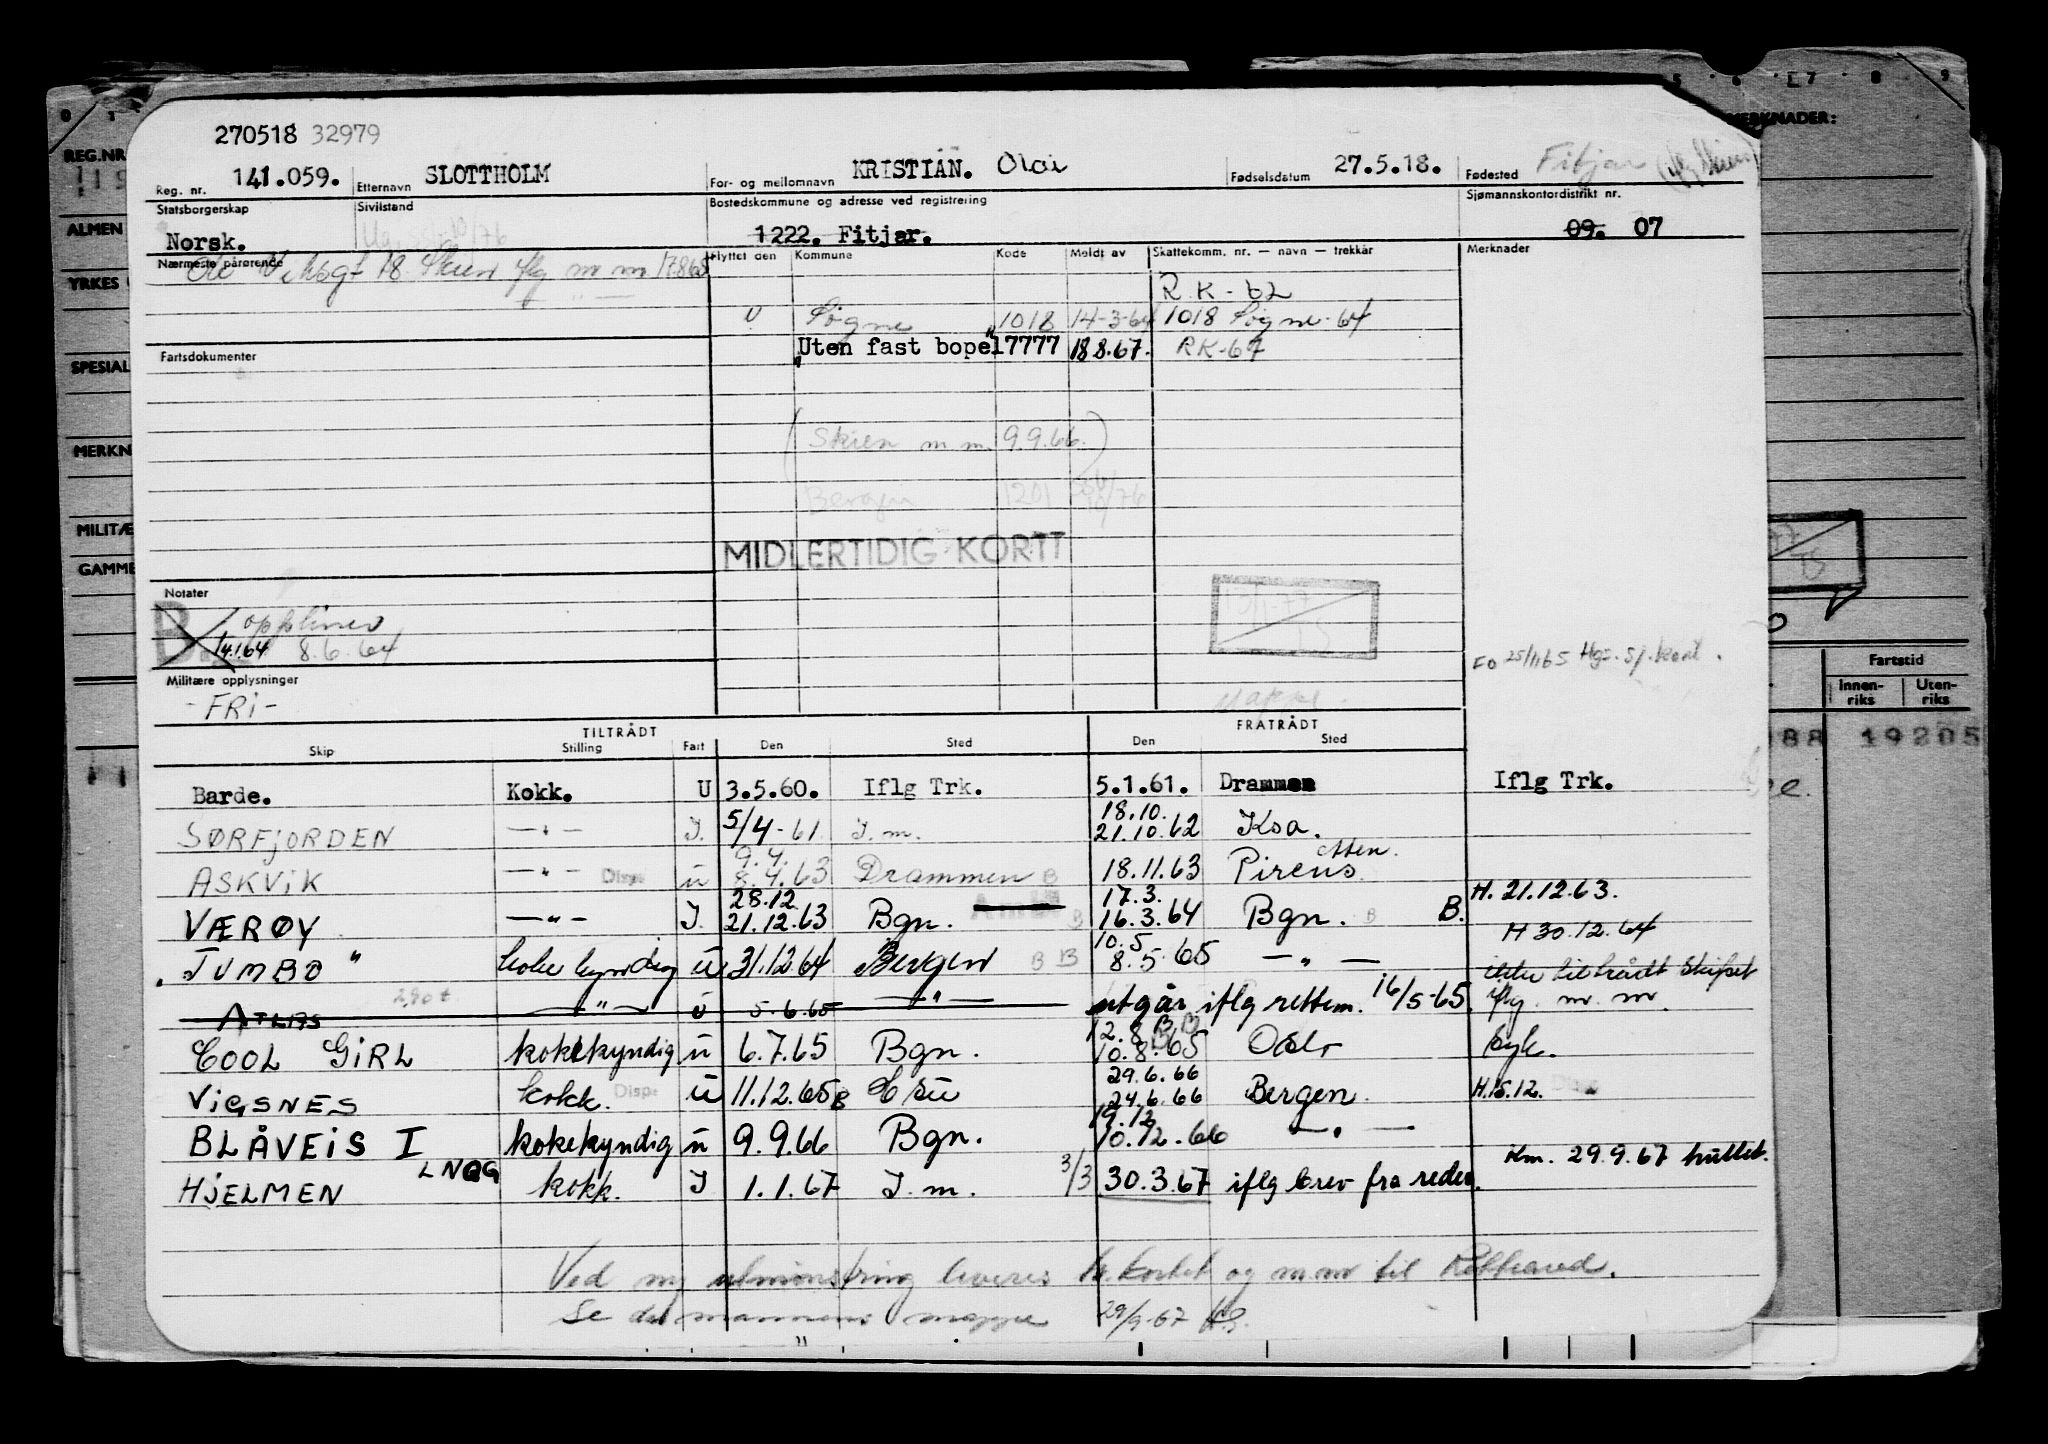 270518 32979
Reg. nr. 141.059. Etternavn SLOTTHOLM For- og mellomnavn KRISTIAN. Olai Fødselsdatum 27.5.18. Fødested Fitjar
Statsborgerskap Sivilstand Bostedskommune og adresse ved registrering Sjømannskontordistrikt nr.
Norsk. 1222. Fitjar. 09. 07
Nærmeste pårørende Flyttet den Kommune Kode Meldt av Skattekomm. nr. — navn — trekkår Merknader
18. Skien iflg m m
R K - 62
U Søgne 1018 14-3-64 1018 Søgne-64
Fartsdokumenter Uten fast bopel 7777 18 8.67. RK-67
(Skien m m. 9.9.66.)
Bergen 1201
MIDLERTIDIG KORT
Notater
B.
14.1.64 8.6.64
FO 25/11 65 Hgs. Sj. kont.
Militære opplysninger
- FRI -
TILTRÅDT FRATRÅDT
Skip Stilling Fart Den Sted Den Sted
Barde. Kokk. U 3.5.60. Iflg Trk. 5.1.61. Drammen Iflg Trk.
18.10.
SØRFJORDEN — " — I. 5/4-61 I. m. 21.10.62 Ksa.
9.4.
ASKVIK — " — Disp U 8.4.63 Drammen B 18.11.63 Pireus
28.12 17.3. H. 21.12.63.
VÆRØY — " — I. 21.12.63 Bgn. B 16.3.64 Bgn. B B.
10.5 H 30.12.64
"JUMBO" kokekyndig U 31.12.64 Bergen B B 8.5.65 — " — ikke tiltrådt skipet
ATLAS — " — U 5.6.65 — " — utgår iflg rettem. 16/5-65. iflg. m. m.
12.8 B B
COOL GIRL kokekyndig U 6.7.65 Bgn. 10.8.65 Oslo syk.
29.6.66
VIGSNES kokk. Disp. U 11.12.65 B 24.6.66 Bergen. H.15.12.
19.12
BLÅVEIS I kokekyndig U 9.9.66 Bgn. 10.12.66 — " —
29.9.67 hullet.
HJELMEN LNQG kokk. I 1.1.67 I. m. 3/3 30.3.67 iflg brev fra rederi.
Ved ny utmønstring leveres h.kortet og m.m til
Se da mannens mappe 29/9-67
REG.NR
ALMEN
YRKES
SPESIAL
MERKN
MILITÆ
GAMME
MERKNADER:
Fartstid
Innen-riks Uten-riks
19205